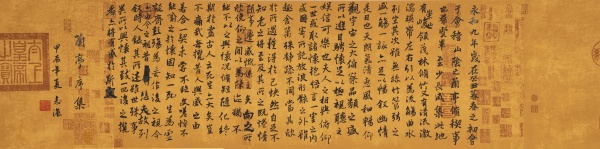 永和九年歲在癸丑暮春之初會
于會稽山陰之蘭亭脩稧事
也羣賢畢至少長咸集此地
有崇山峻領茂林脩竹又有清流激
湍暎帶左右引以為流觴曲水
列坐其次雖無絲竹管弦之
盛一觴一詠亦足以暢敘幽情
是日也天朗氣清惠風和暢仰
觀宇宙之大俯察品類之盛
所以遊目騁懷足以極視聽之
娛信可樂也夫人之相與俯仰
一世或取諸懷抱悟言一室之內
或因寄所託放浪形骸之外雖
趣舍萬殊靜躁不同當其欣
於所遇暫得於己怏然自足不
知老之將至及其所之既惓情
隨事遷感慨係之矣向之所
欣俛仰之閒以為陳迹猶不
能不以之興懷況脩短隨化終
期於盡古人云死生亦大矣豈
不痛哉每攬昔人興感之由
若合一契未嘗不臨文嗟悼不
能喻之於懷固知一死生為虛
誕齊彭殤為妄作後之視今
亦由今之視昔悲夫故列
敘時人錄其所述雖世殊事
異所以興懷其致一也後之攬
者亦將有感於斯文
蘭亭序集
甲辰年夏